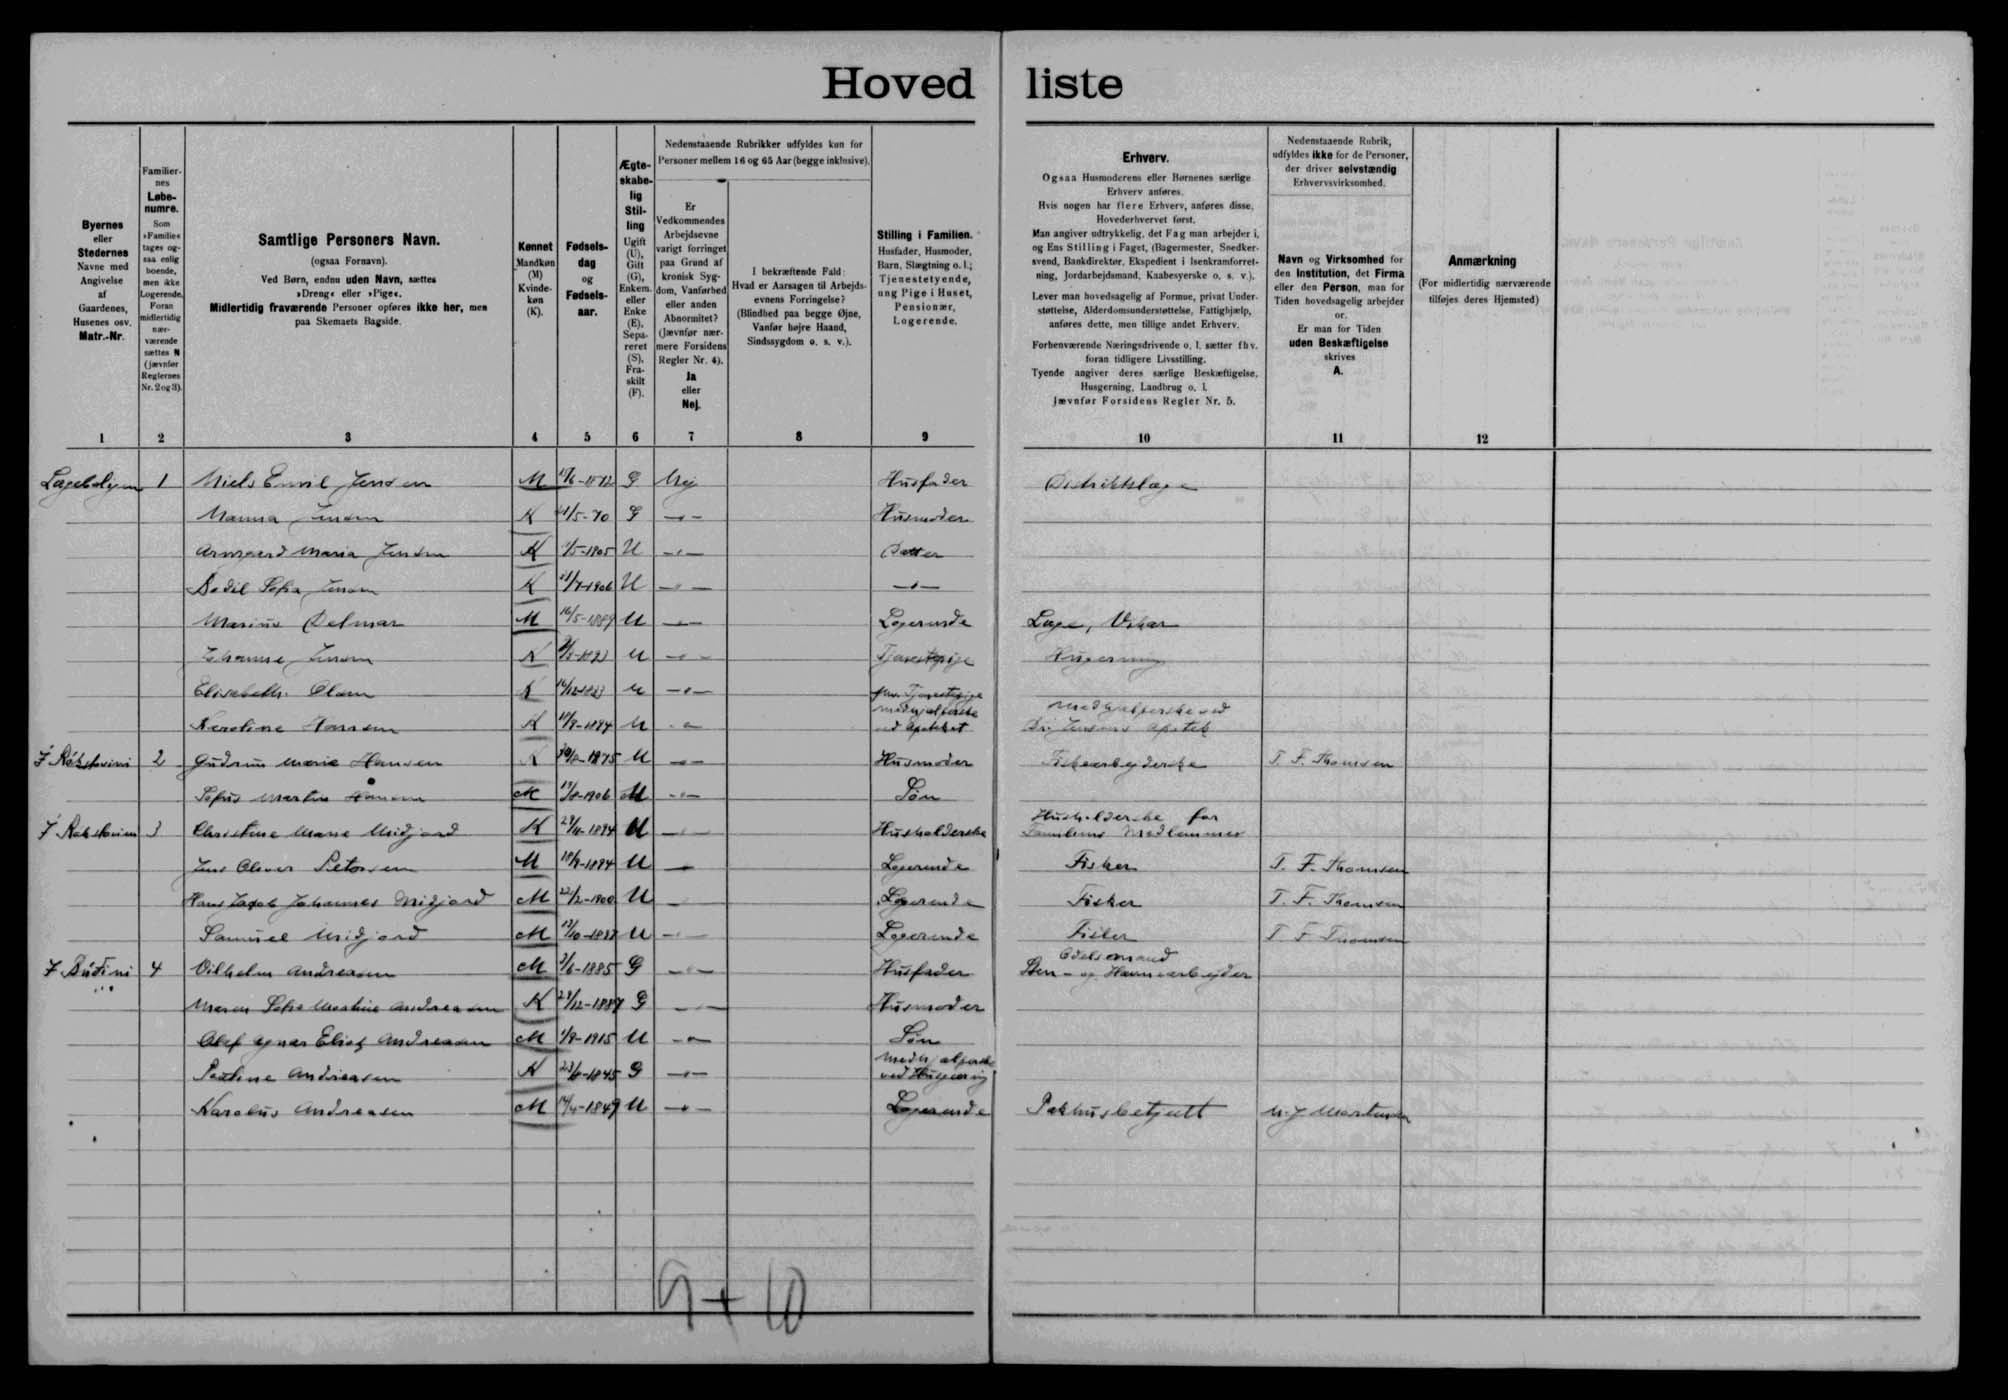 Hoved liste
Byernes
eller
Stedernes
Navne med
Angivelse
af
Gaardenes,
Husenes osv.
Matr.-Nr.
Familier-
nes
Løbe-
numre.
Som
»Familie«
tages og-
saa enlig
boende,
men ikke
Logerende.
Foran
midlertidig
nær-
værende
sættes N
(jævnfør
Reglernes
Nr. 2 og 3).
Samtlige Personers Navn.
(ogsaa Fornavn).
Ved Børn, endnu uden Navn, sættes
»Dreng« eller »Pige«.
Midlertidig fraværende Personer opføres ikke her, men
paa Skemaets Bagside.
Kønnet
Mandkøn
(M)
Kvinde-
køn
(K).
Fødsels-
dag
og
Fødsels-
aar.
Ægte-
skabe-
lig
Stil-
ling
Ugift
(U),
Gift
(G),
Enkem.
eller
Enke
(E),
Sepa-
reret
(S),
Fra-
skilt
(F).
Nedenstaaende Rubrikker udfyldes kun for
Personer mellem 16 og 65 Aar (begge inklusive).
Er
Vedkommendes
Arbejdsevne
varigt forringet
paa Grund af
kronisk Syg-
dom, Vanførhed
eller anden
Abnormitet?
(Jævnfør nær-
mere Forsidens
Regler Nr. 4).
Ja
eller
Nej.
I bekræftende Fald:
Hvad er Aarsagen til Arbejds-
evnens Forringelse?
(Blindhed paa begge Øjne,
Vanfør højre Haand,
Sindssygdom o. s. v.).
Stilling i Familien.
Husfader, Husmoder,
Barn, Slægtning o. l.;
Tjenestetyende,
ung Pige i Huset,
Pensionær,
Logerende.
Erhverv.
Ogsaa Husmoderens eller Børnenes særlige
Erhverv anføres.
Hvis nogen har flere Erhverv, anføres disse,
Hovederhvervet først.
Man angiver udtrykkelig, det Fag man arbejder i,
og Ens Stilling i Faget, (Bagermester, Snedker-
svend, Bankdirektør, Ekspedient i Isenkramforret-
ning, Jordarbejdsmand, Kaabesyerske o. s. v.).
Lever man hovedsagelig af Formue, privat Under-
støttelse, Alderdomsunderstøttelse, Fattighjælp,
anføres dette, men tillige andet Erhverv.
Forhenværende Næringsdrivende o. l. sætter fhv.
foran tidligere Livsstilling.
Tyende angiver deres særlige Beskæftigelse,
Husgerning, Landbrug o. l.
Jævnfør Forsidens Regler Nr. 5.
Nedenstaaende Rubrik,
udfyldes ikke for de Personer,
der driver selvstændig
Erhvervsvirksomhed.
Navn og Virksomhed for
den Institution, det Firma
eller den Person, man for
Tiden hovedsagelig arbejder
for.
Er man for Tiden
uden Beskæftigelse
skrives
A.
Anmærkning
(For midlertidig nærværende
tilføjes deres Hjemsted)
1 2 3 4 5 6 7 8 9 10 11 12
Lægeboligen 1 Niels Emil Jensen M G Nej Husfader Distriktslæge
Manna Jensen K G Husmoder
Armgard Maria Jensen K U Datter
Bodil Sofia Jensen K U
Marius Delmar M 16/5-1889 U Logerende Læge, Vikar
Johanne Jensen K U Tjenestepige Husgerning
Elisabeth Olsen K U Tjenestepige
Karoline Hansen K U Medhjælperske ved Apoteket Medhjælperske ved Jensens Apotek
2 Gudrun Marie Hansen K U Husmoder Fiskearbejderske T. F. Thomsen
Sofus Martin Hansen M U Søn
3 Christine Marie Midjord K 29/11-1894 U Husholderske Husholderske for Familiens Medlemmer
Jens Oliver Petersen M 18/9-1894 U Logerende Fisker T. F. Thomsen
Hans Jakob Johannes Midjord M 22/2-1900 U Logerende Fisker T. F. Thomsen
Samuel Midjord M U Logerende Fisker T. F. Thomsen
4 Vilhelm Andreasen M 3/6-1885 G Husfader Odelsmand Sten- og Havnearbejder
Maren Sofie Martine Andreasen K G Husmoder
Olaf Agnar Elias Andreasen M 1/9-1915 U Søn
Pauline Andreasen K G Medhjælperske ved Husgerning
Karolus Andreasen M U Logerende Pakhusbetjent M. J. Mortensen
9 + 10